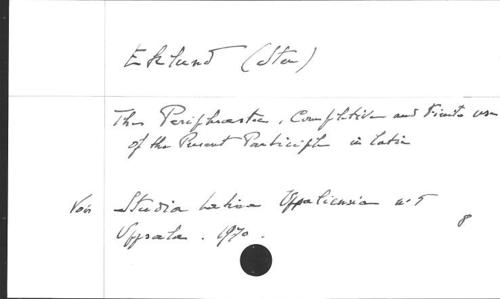 Eklund (Sten)
The Periphrastic, Completive and Finite use
of the Present Participle in Latin
Voir Studia Latina Upsaliensia n. 5
Uppsala. 1970.
8